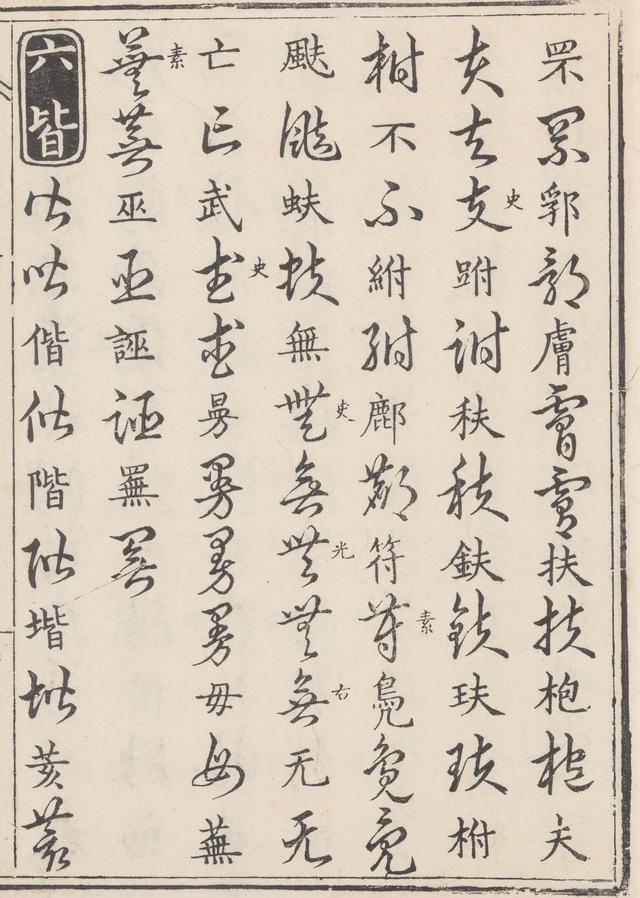 罘罘郛郛膚膚膚扶扶枹枹夫
夫夫夫史跗跗䄮䄮鈇鈇玞玞柎
柎不不紨紨鄜鄜符符素鳧鳧鳧
颫颫蚨蚨無無史無無光無無右无无
亡亡武武史武毋毋蕪
蕪素蕪巫巫誣誣
六皆皆皆偕偕階階堦堦荄荄